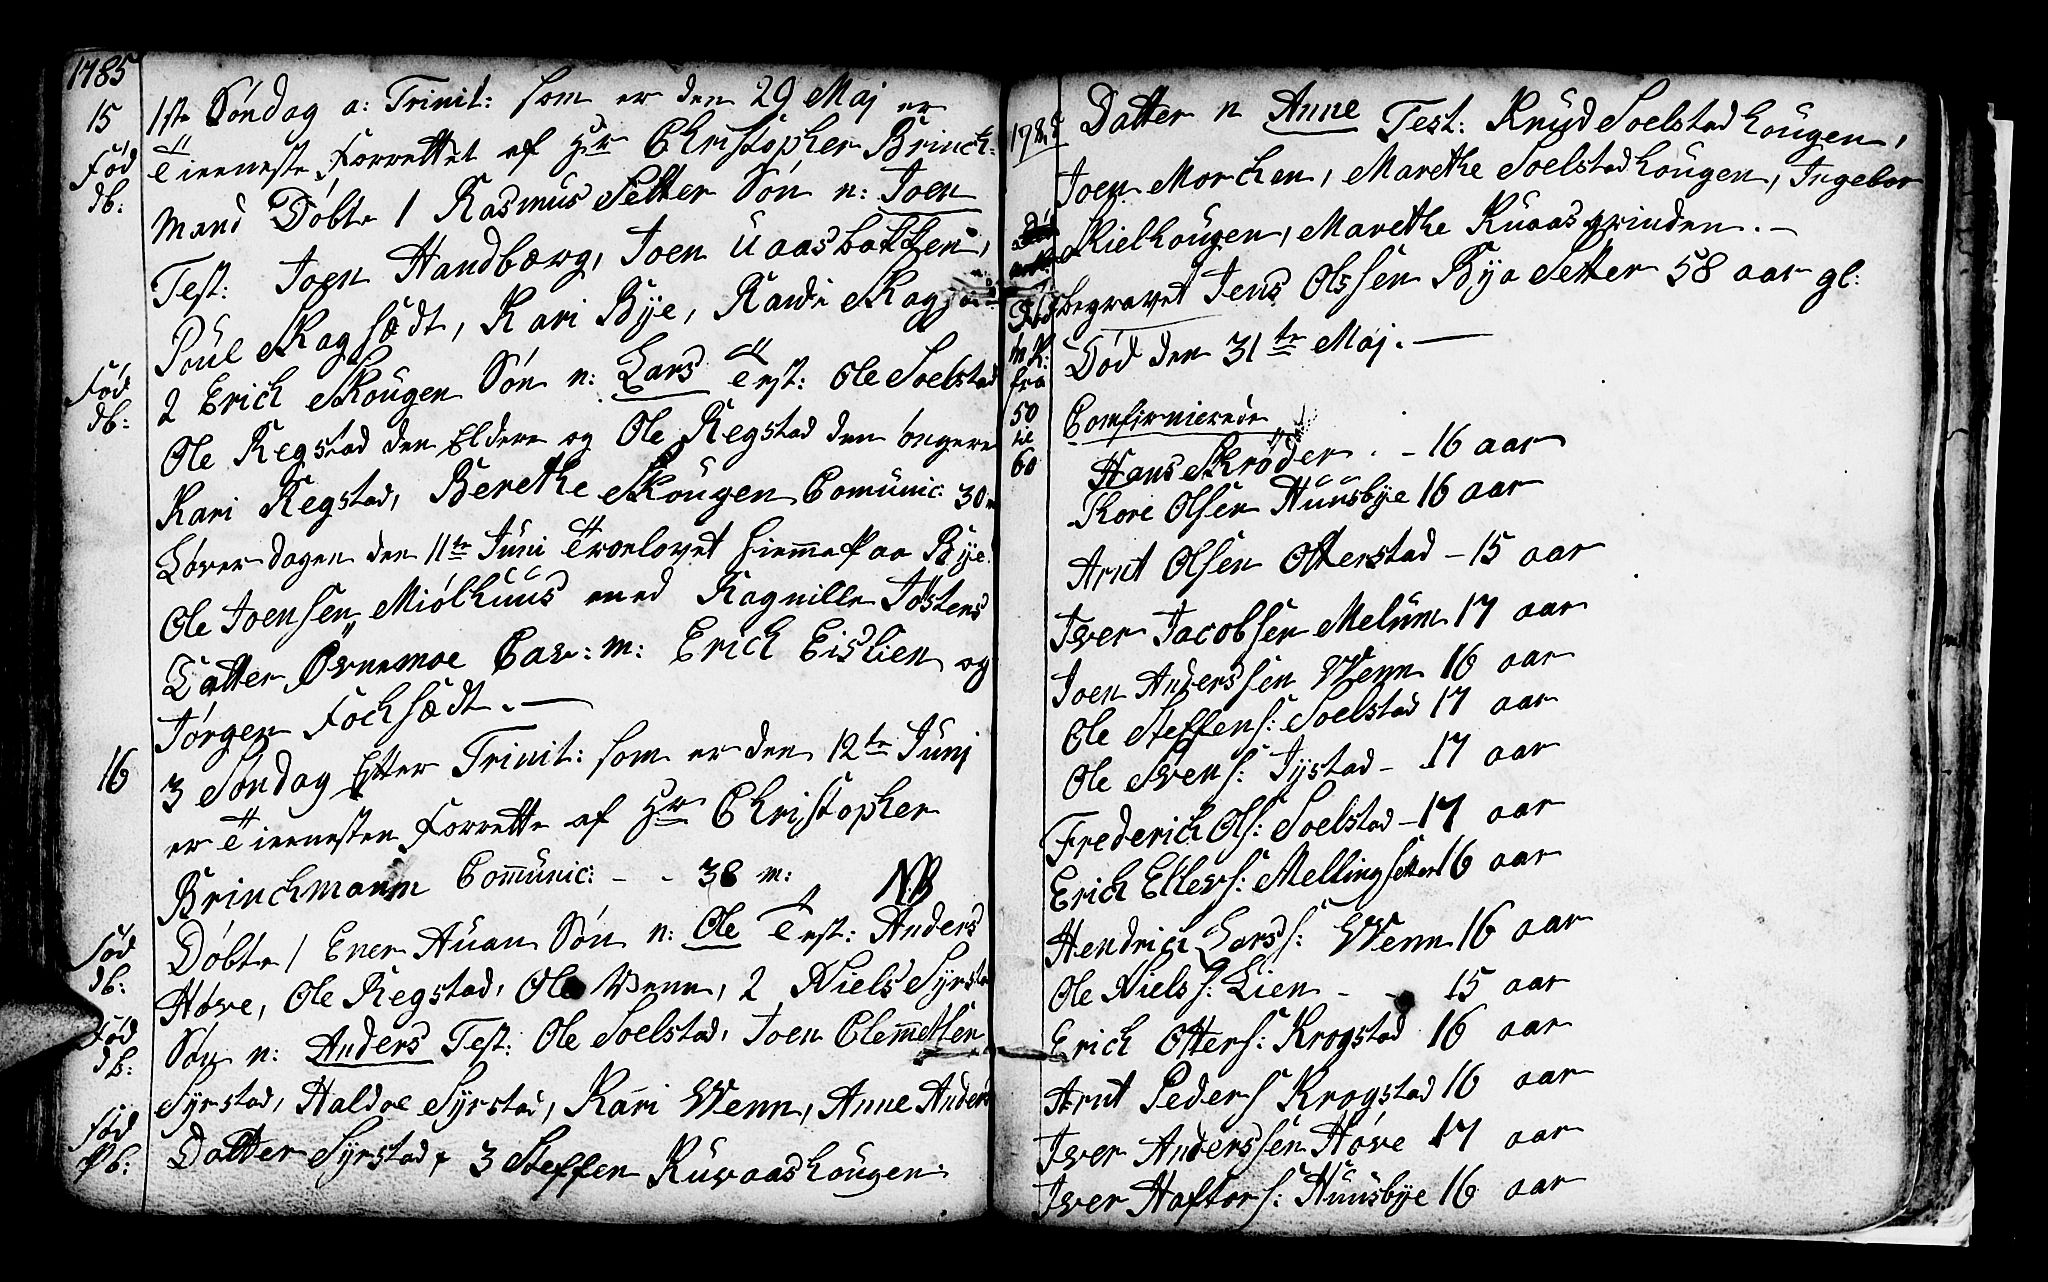 1785
15 1ste Søndag a: Trinit: som er den 29 Maj er
Fød Tienneste Forrettet af Hr Christopher Brinch-
db: mand Døbte 1 Rasmus Setter Søn n: Joen
Test: Joen Handbærg, Joen Uaasbotten,
Poul Skagsædt, Kari Bye, Randi
Fød 2 Erich Skougen Søn n: Lars Test: Ole Soelstad
db: Ole Regstad den Eldere og Ole Regstad den öngere
Kari Regstad, Berethe Skougen Comunic: 30
Løverdagen den 11te Juni Troelovet hiemme paa Bye
Ole Joensen Miølhuus med Ragnille Jöstens
Datter Øvnemoe Cav: m: Erich Eislien og
Jørgen Fochsædt. —
16 3 Søndag Efter Trinit: som er den 12te Junj
er Tienesten Forrette af Hr Christopher
Brinchmann Comunic: - - 38 m: NB
Fød Døbte 1 Ener Auan Søn n: Ole Test: Anders
db: Høve, Ole Regstad, Ole Venn, 2 Niels Syrstad
Fød Søn n: Anders Test: Ole Soelstad, Joen Clemetsen
db: Syrstad, Haldoe Syrstad, Kari Wenn, Anne Anders
Fød Datter Syrstad, 3 Steffen Ruvaashougen
db:
1785 Datter n Anne Test: Knud Soelstadhougen,
Joen Morchen, Marethe Soelstadhougen, Ingebor
Skielhougen, Marethe Ruaasgrinden. —
Død begravet Jens Olssen Bya Setter 58 aar gl:
m K: Død den 31te Maj. —
fra
50 Comfirmerede
til
60 Hans Skrøder . - 16 aar
Kore Olsen Huusbye 16 aar
Arnt Olsen Otterstad - 15 aar
Iver Jacobsen Melum 17 aar
Joen Anderssen Wenn 16 aar
Ole Steffens: Soelstad 17 aar
Ole Svens: Jystad - 17 aar
Frederich Ols: Soelstad - 17 aar
Erich Ellevs: Mellingsetter 16 aar
Hendrich Larss: Wenn 16 aar
Ole Niels s: Lien - - 15 aar
Erich Otters: Krogstad 16 aar
Arnt Peders Krogstad 16 aar
Iver Anderssen Høve 17 aar
Iver Haftors: Huusbye 16 aar